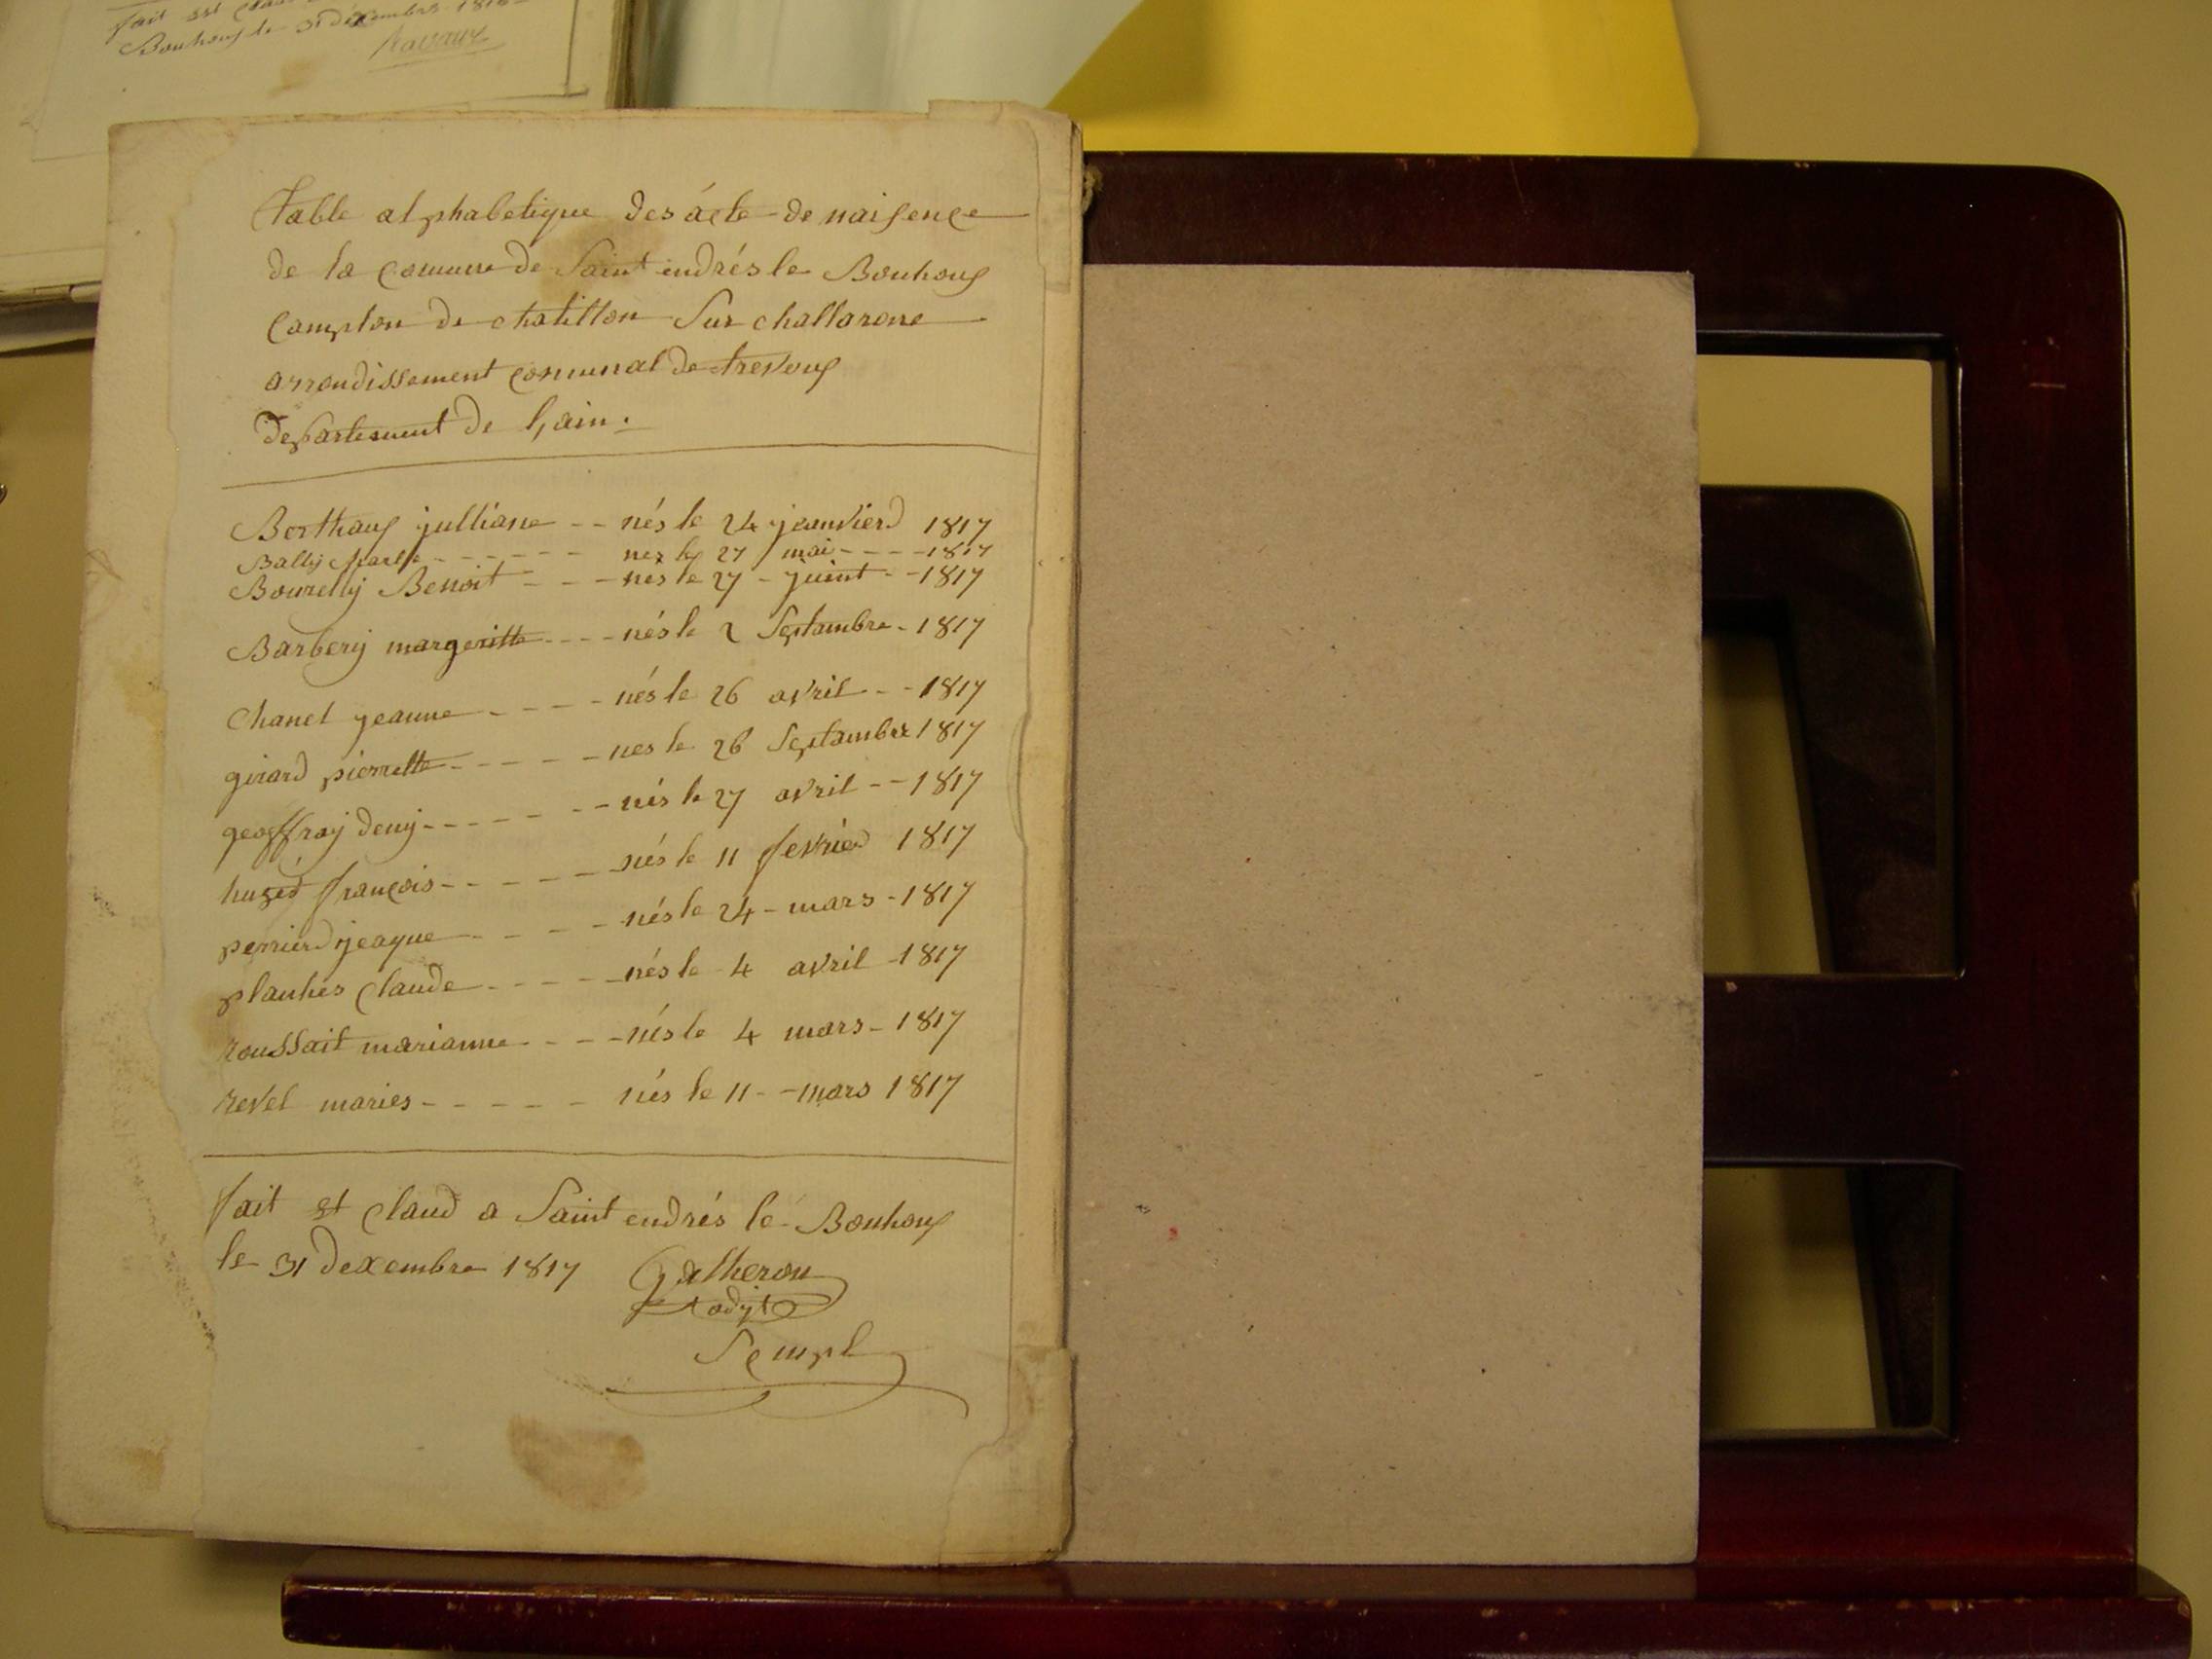 fait est
Bouhouy le 31 décembre 1816
Ravaux
table alphabetique des ácte de naisence
de la comune de Saint endrés le Bouhouy
Campton de chatillon Sur challarone
arrondissement comunal de trevouy
departement de l'ain.
Berthauy julliane -- nés le 24 janvierd 1817
Bally ------ nez le 27 mai ---- 1817
Bourelly Benoit --- nés le 27 - juint -- 1817
Barbery margeritte ---- nés le 2 Septambre - 1817
Chanel jeanne ---- nés le 26 avril -- 1817
girard pierrette ----- nes le 26 Septambre 1817
geoffray deny ------- nés le 27 avril -- 1817
hugéd françois ------ nés le 11 fevried 1817
perrierd jeaque ---- nés le 24 - mars - 1817
planhés claude ----- nés le 4 avril - 1817
roussait marianne ---- nés le 4 mars - 1817
revel maries ----- nés le 11 -- mars 1817
fait et claud a Saint endrés le Bouhouy
le 31 dexembre 1817 Galheron
adjt